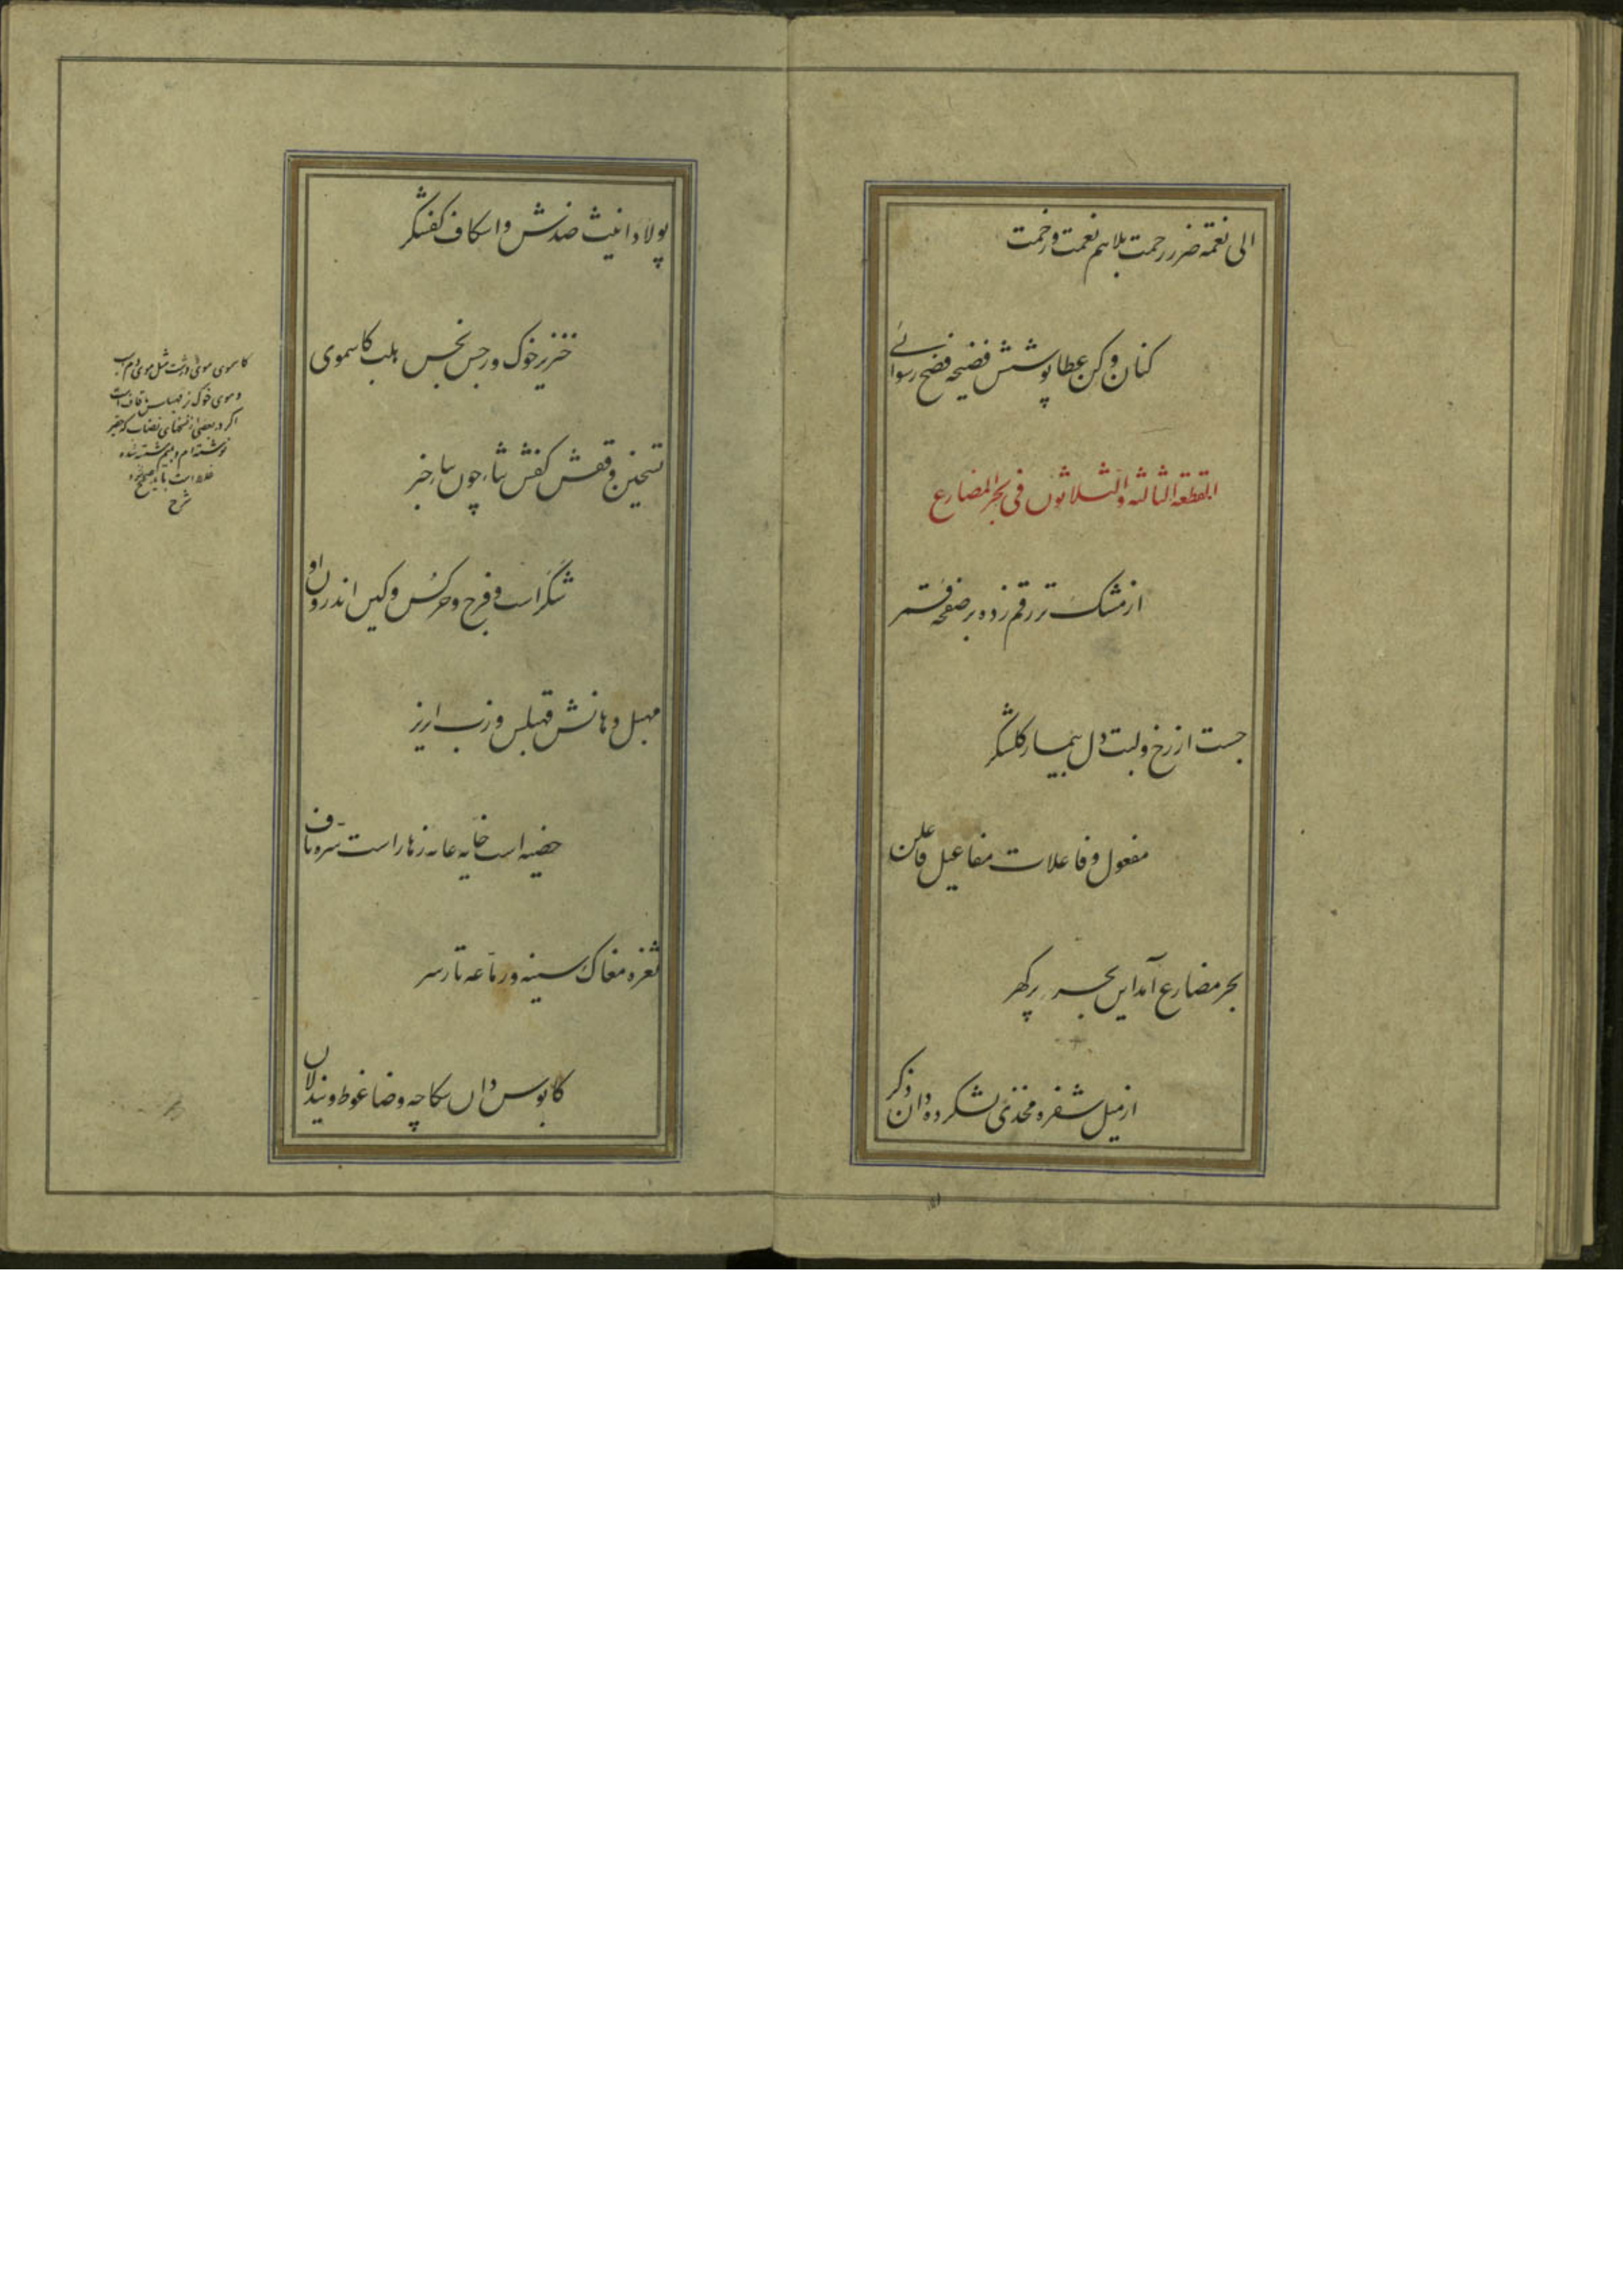 الی نغمة ضرر رحمت بلا هم نعمت و رخمت
کنان و کن عطا پوشش فضیحه فضح رسوائے
القطعه الثالثه والثلاثون فی بحر المضارع
از مشک تر رقم زده بر صفحه قمر
جست از رخ و لبت دل بیمار گلشکر
مفعول و فاعلات مفاعیل فاعلن
بحر مضارع آمد این بحر پر گهر
ازمیل شفره و مخذی نشکرده دان دگر
پولاد انیث ضدش و اسکاف کفشگر
خنزیر خوک و رجس نجس هلب کاسموی
تسخین و قفش کفش
شکر است و فرج و حر کس و کین اندرون او
مهبل دهانش قهبلس و زب ایر نر
خصیه است خایه عانه زهار است سره ناف
ثغره مغاک سینه و رماعه تار سر
کابوس دان سکاچه و ضاغوط و نیدلان
کاسموی موی درشت مثل موی دم اسب
و موی خوک
اگر در بعضی از نسخهای نصاب که
نوشته‌ام
غلط است باید
شرح